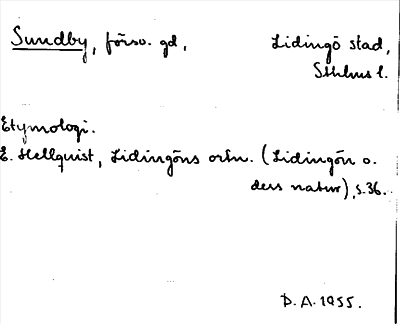 Sundby, försv. gd, Lidingö stad,
Sthlms l.
Etymologi.
E. Hellquist, Lidingöns ortn. (Lidingön o.
dess natur), s. 36.
D. A. 1955.